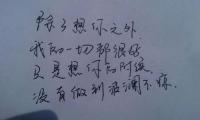 除了想你之外
我的一切都很好
只是想你的时候
没有做到波澜不惊